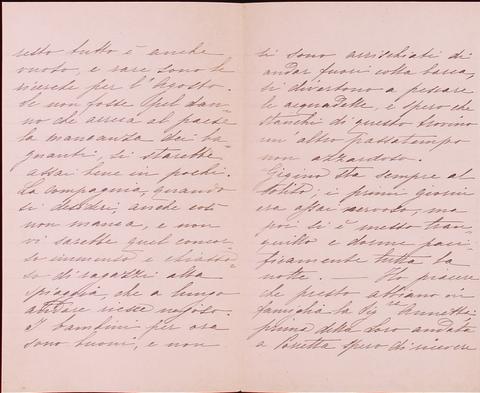 resto tutto è anche
vuoto, e rare sono le
ricerche per l'Agosto.
Se non fosse quel dan-
no che arreca al paese
la mancanza dei ba-
gnanti, si starebbe
assai bene in pochi.
La compagnia, quando
si desideri, anche così
non manca, e non
vi sarebbe quel concor-
so immenso e chiasso-
so di ragazzi alla
spiaggia, che a lungo
andare riesce noioso.
I bambini per ora
sono buoni, e non
si sono arrischiati di
andar fuori colla barca,
si divertono a pescare
le acquadelle, e spero che
stanchi di questo trovino
un altro passatempo
non azzardoso.
Gigino sta sempre al
solito; i primi giorni
era assai nervoso, ma
poi si è messo tran-
quillo e dorme paci-
ficamente tutta la
notte. — Ho piacere
che presto abbiano in
famiglia la Sigra Annetta
prima della loro andata
a Porretta spero di ricevere